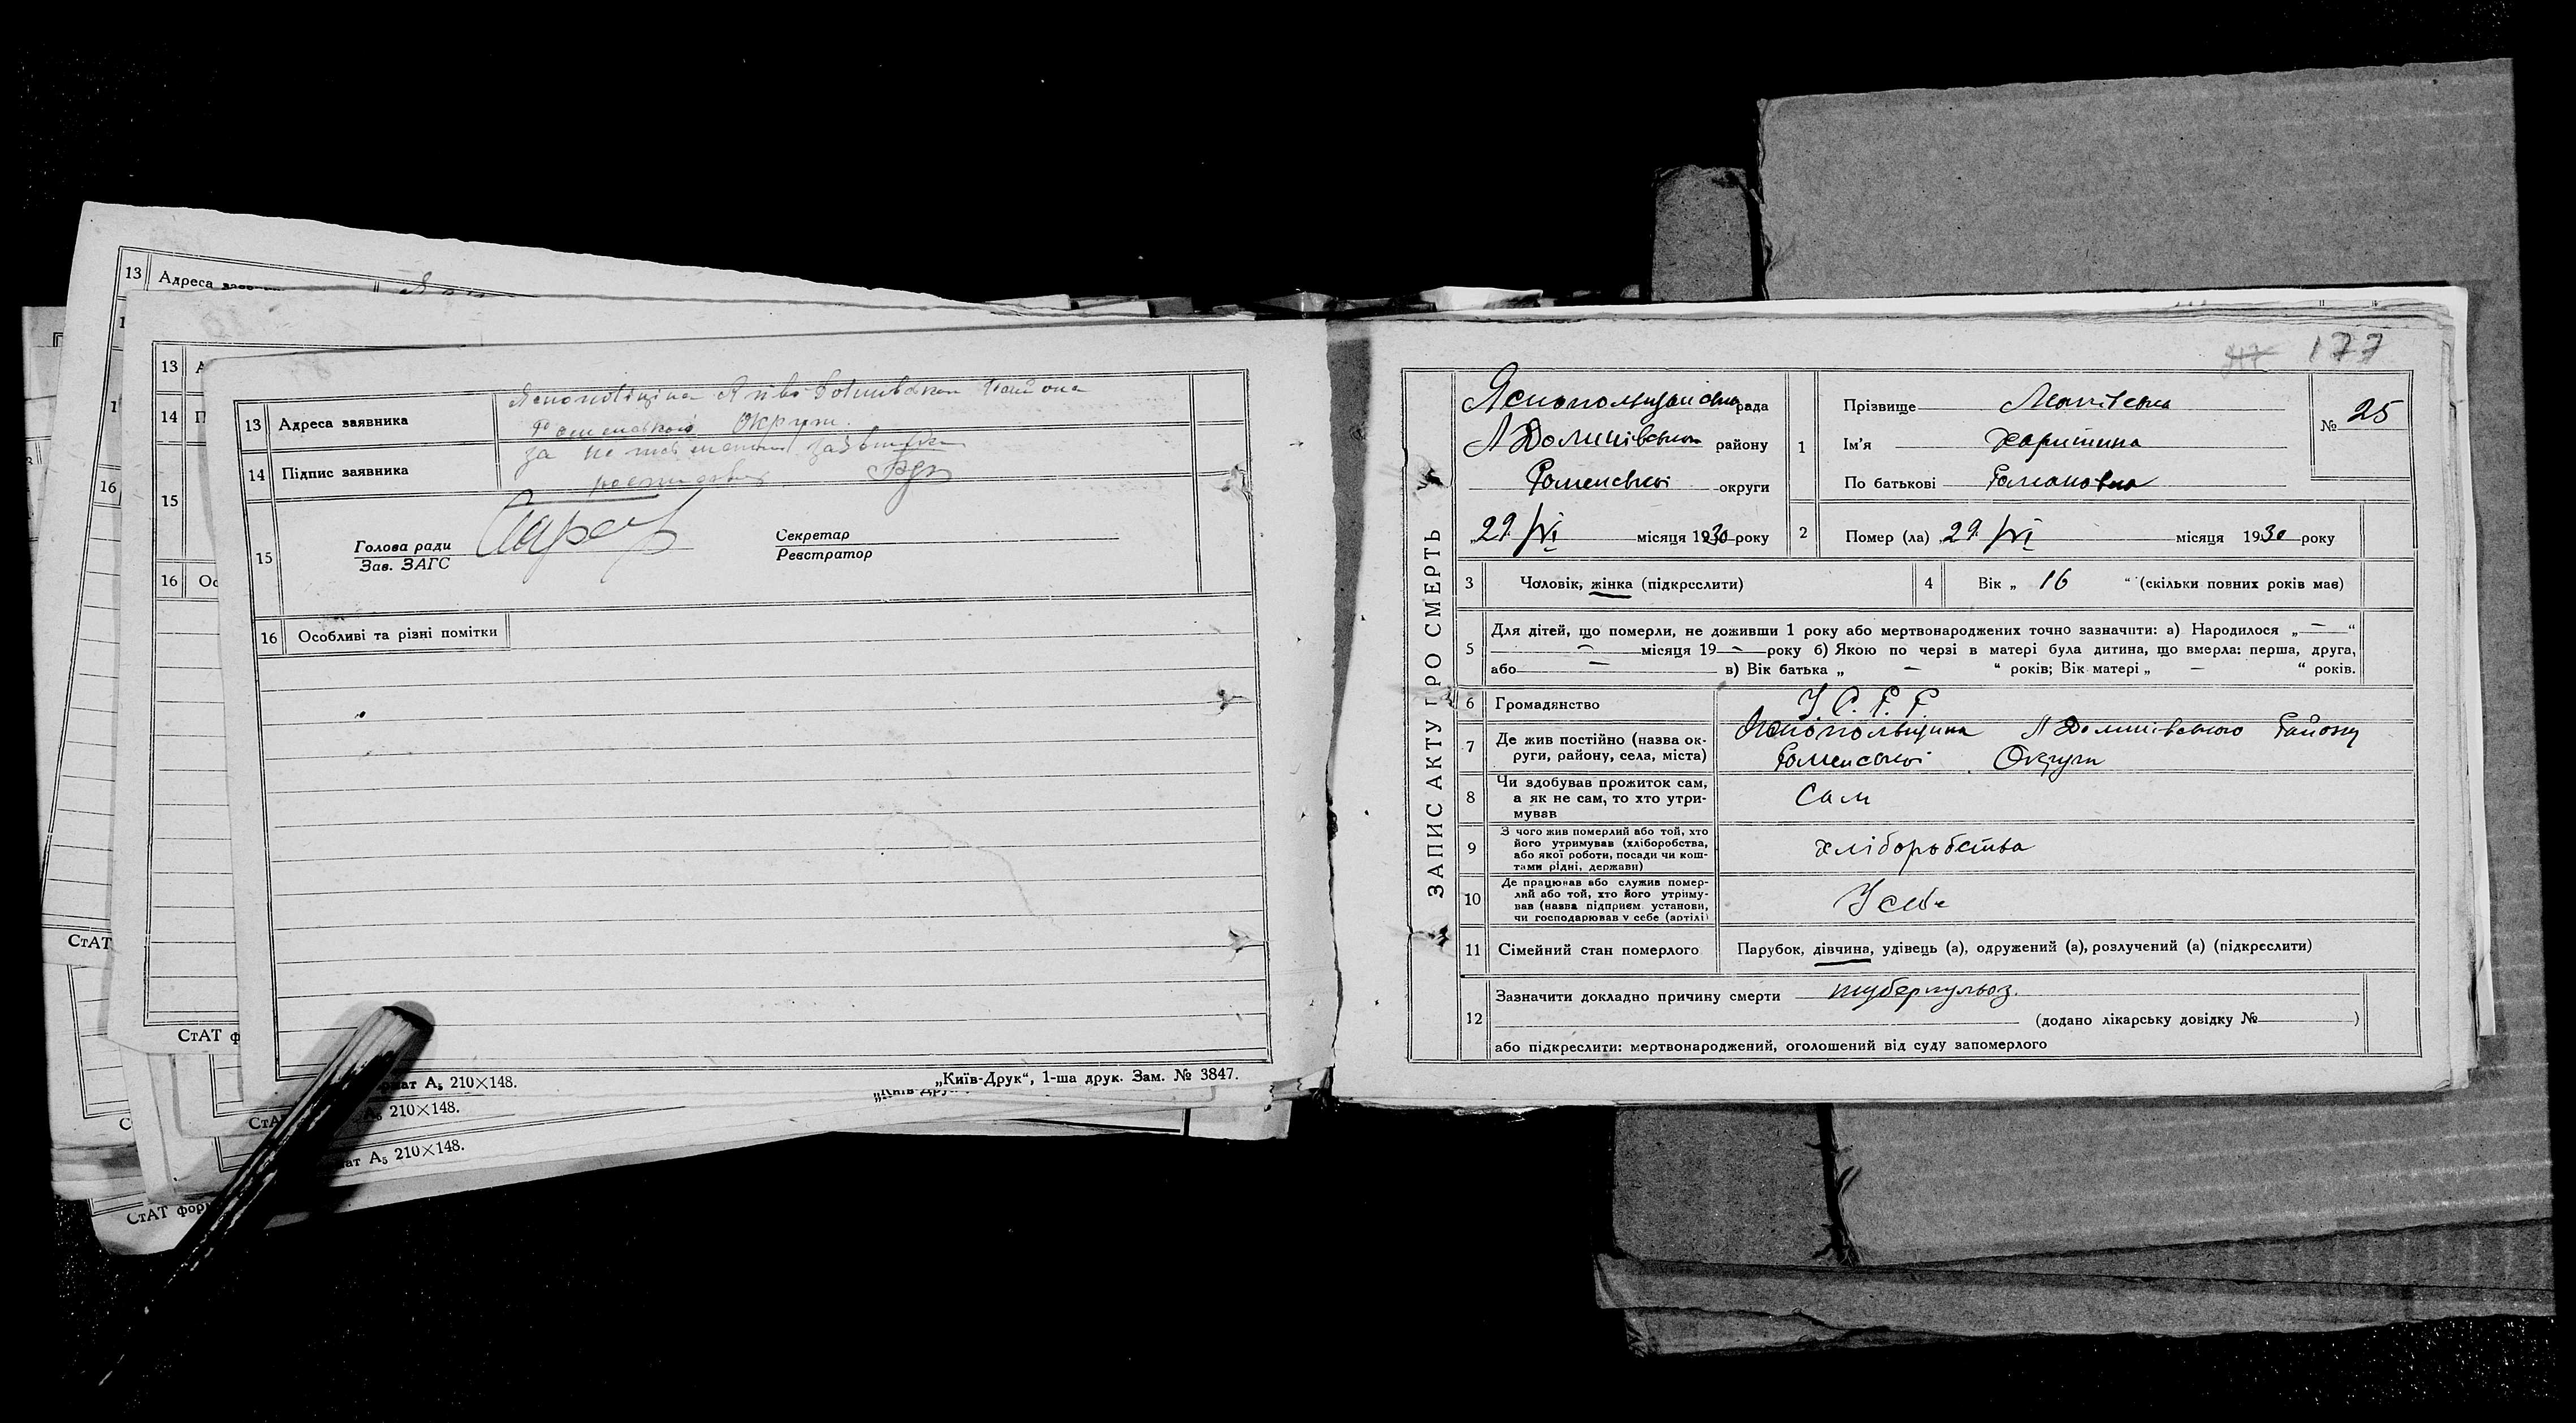 13 Адреса
13
14
15
16
16
13 Адреса заявника
Роменської Округи.
14 Підпис заявника
за неписьменний
15
Голова ради
Зав. ЗАГС
Секретар
Реєстратор
16 Особливі та різні помітки
СтАТ
СтАТ ф
А₅ 210×148.
„Київ-Друк“, 1-ша друк. Зам. № 3847.
210×148.
А₅ 210×148.
СтАТ фор
177
ЗАПИС АКТУ ПРО СМЕРТЬ
рада
району
Роменської округи
„29 / VI місяця 1930 року
1
Прізвище
Ім’я Харитина
По батькові Романовна
№ 25
2 Помер (ла) „29 / VI місяця 1930 року
3 Чоловік, жінка (підкреслити)
4 Вік „ 16 “ (скільки повних років має)
5 Для дітей, що померли, не доживши 1 року або мертвонароджених точно зазначити: а) Народилося „ — “
— місяця 19 — року б) Якою по черзі в матері була дитина, що вмерла: перша, друга,
або — в) Вік батька „ — “ років; Вік матері „ — “ років.
6 Громадянство У. С. Р. Р
7 Де жив постійно (назва ок-
руги, району, села, міста)
Яснопольщина Л Долинівського Району
Роменської Округи
8 Чи здобував прожиток сам,
а як не сам, то хто утри-
мував
Сам
9 З чого жив померлий або той, хто
його утримував (хліборобства,
або якої роботи, посади чи кош-
тами рідні, держави)
хліборобства
10 Де працював або служив помер-
лий або той, хто його утриму-
вав (назва підприєм. установи,
чи господарював у себе (артілі)
У себе
11 Сімейний стан померлого Парубок, дівчина, удівець (а), одружений (а), розлучений (а) (підкреслити)
12 Зазначити докладно причину смерти туберкульоз.
(додано лікарську довідку № )
або підкреслити: мертвонароджений, оголошений від суду запомерлого